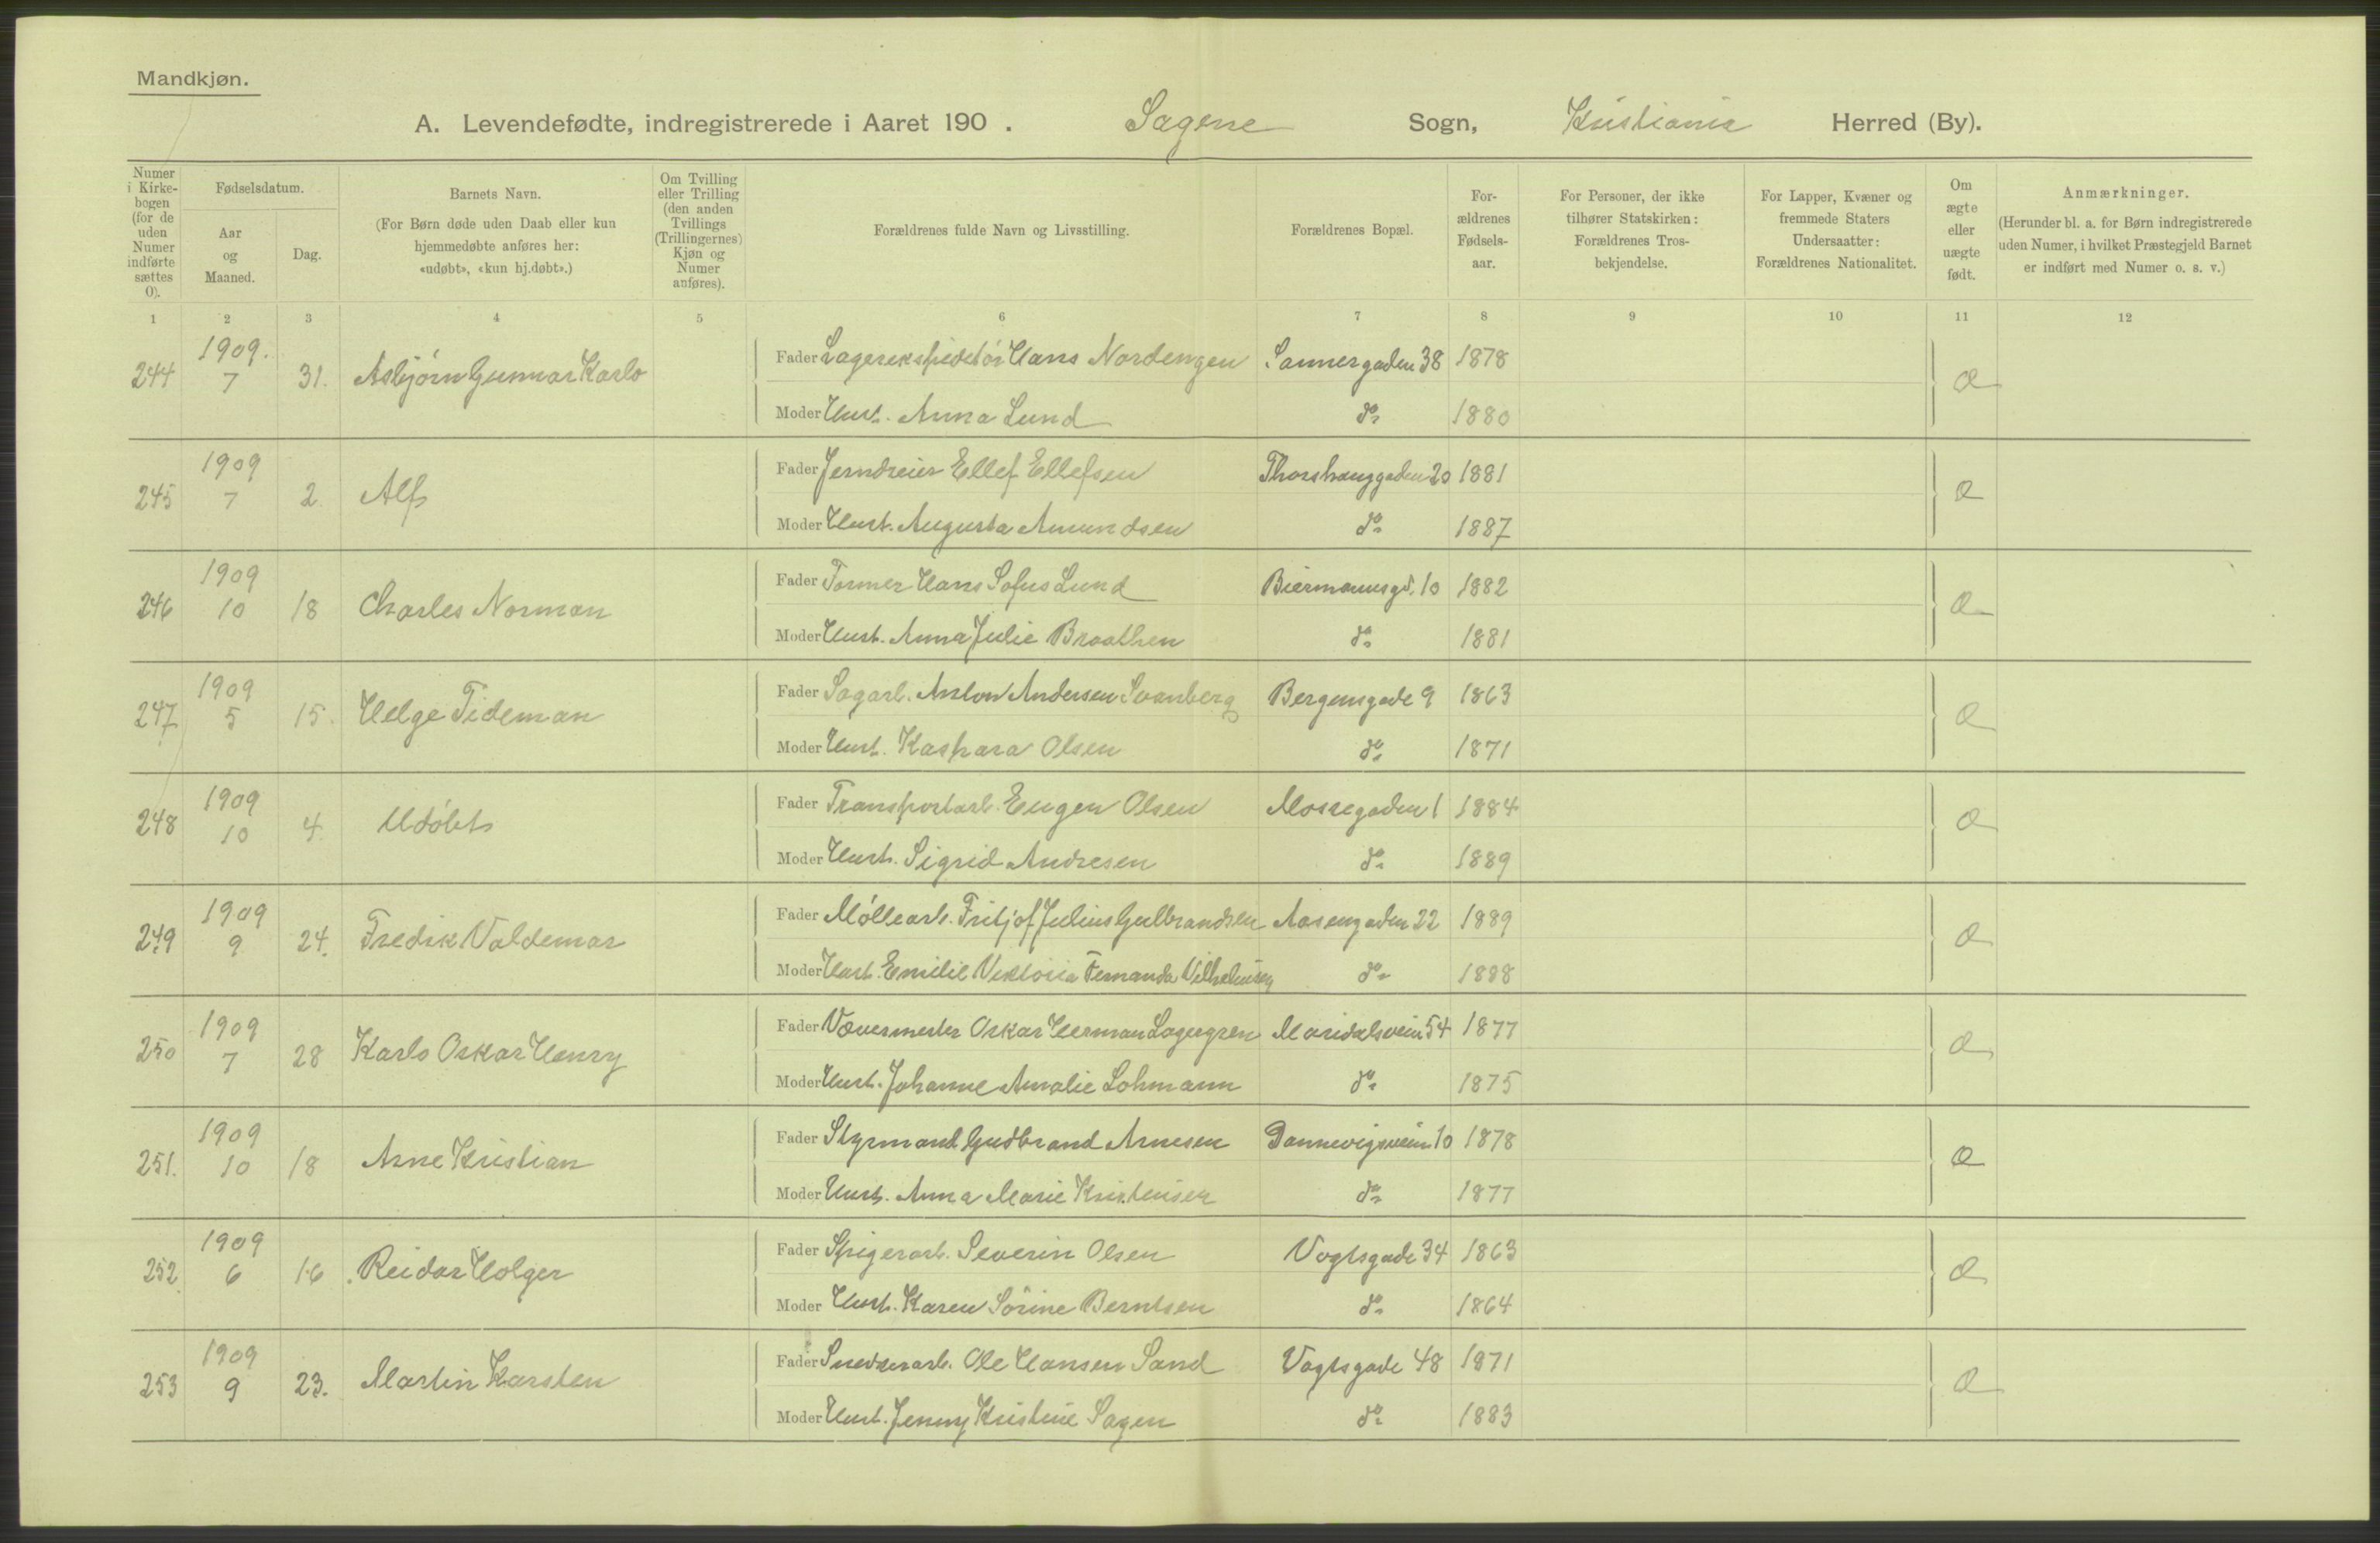 Mandkjøn.
A. Levendefødte, indregistrerede i Aaret 190 . Sagene Sogn, Kristiania Herred (By).
Numer i Kirke-bogen (for de uden Numer indførte sættes 0).
Fødselsdatum.
Aar og Maaned.
Dag.
Barnets Navn.
(For Børn døde uden Daab eller kun
hjemmedøbte anføres her:
«udøbt», «kun hj.døbt».)
Om Tvilling eller Trilling (den anden Tvillings (Trillingernes) Kjøn og Numer anføres).
Forældrenes fulde Navn og Livsstilling.
Forældrenes Bopæl.
For-ældrenes Fødsels-aar.
For Personer, der ikke
tilhører Statskirken:
Forældrenes Tros-
bekjendelse.
For Lapper, Kvæner og
fremmede Staters
Undersaatter:
Forældrenes Nationalitet.
Om ægte eller uægte født.
Anmærkninger.
(Herunder bl. a. for Børn indregistrerede
uden Numer, i hvilket Præstegjeld Barnet
er indført med Numer o. s. v.)
1 2 3 4 5 6 7 8 9 10 11 12
1909.
244 7 31. Asbjörn Gunnar Karlo
Fader Lagerekspeditör Hans Nordengen Sannergaden 38 1878
Moder Hust. Anna Lund do 1880
Æ
1909
245 7 2 Alf
Fader Jerndreier Ellef Ellefsen Thorshauggaden 20 1881
Moder Hust. Augusta Amundsen do 1887
Æ
1909
246 10 18 Charles Norman
Fader Former Hans Sofus Lund Biermannsgd. 10 1882
Moder Hust. Anna Julie Braathen do 1881
Æ
1909
247 5 15. Helge Tideman
Fader Sagarb. Anton Andersen Svanberg Bergensgade 9 1863
Moder Hust. Kaspara Olsen do 1871
Æ
1909
248 10 4. Udöbt
Fader Transportarb. Eugen Olsen Mossegaden 1 1884
Moder Hust. Sigrid Andresen do 1889
Æ
1909
249 9 24. Fredrik Valdemar
Fader Möllearb. Fritjof Julius Gulbrandsen Aasengaden 22 1889
Moder Hust. Emilie Viktoria Fernanda Vilhelmsen do 1888
Æ
1909
250 7 28 Karlo Oskar Henry
Fader Vævermester Oskar Herman Lagergren Maridalsvein 54 1877
Moder Hust. Johanne Amalie Lohmann do 1875
Æ
1909
251. 10 18 Arne Kristian
Fader Styrmand Gudbrand Arnesen Dannevigsvein 10 1878
Moder Hust. Anna Marie Kristensen do 1877
Æ
1909
252 6 16. Reidar Holger
Fader Spigerarb. Severin Olsen Vogtsgade 34 1863
Moder Hust. Karen Sörine Berntsen do 1864
Æ
1909
253 9 23. Martin Karsten
Fader Snedkerarb. Ole Hansen Sand Vogtsgade 48 1871
Moder Hust. Jenny Kristine Sagen do 1883
Æ